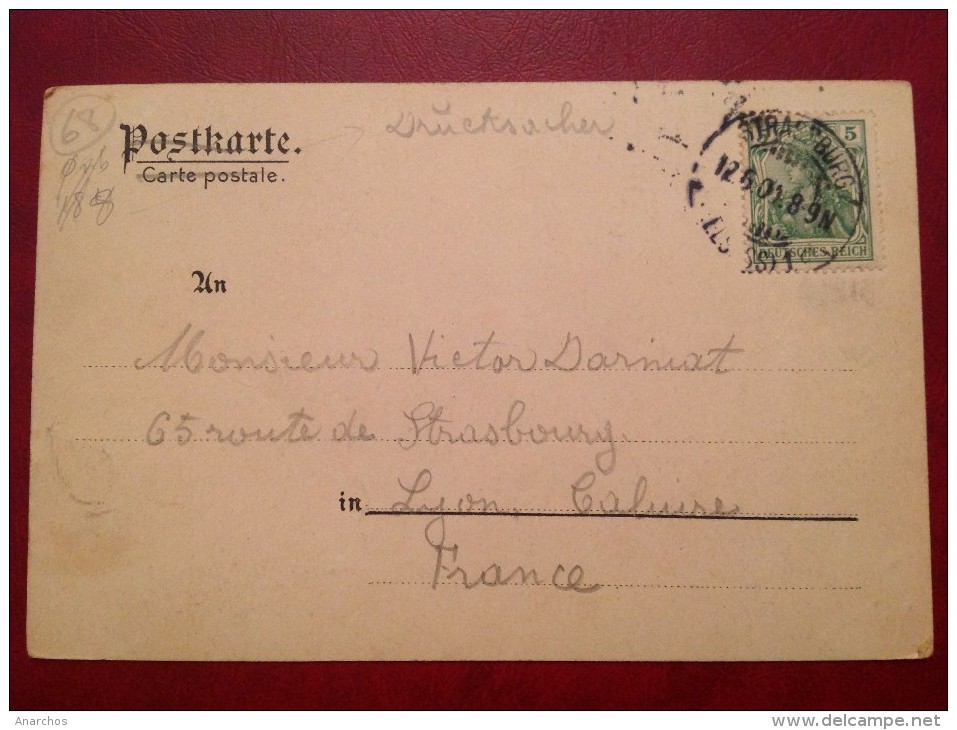 68
Postkarte.
Carte postale.
Drucksachen
STRASSBURG
12.5.01.8-9N
5
DEUTSCHES REICH
An
Monsieur Victor Darmat
65 route de Strasbourg.
in Lyon. Caluire
France
Anarchos
delcampe.net